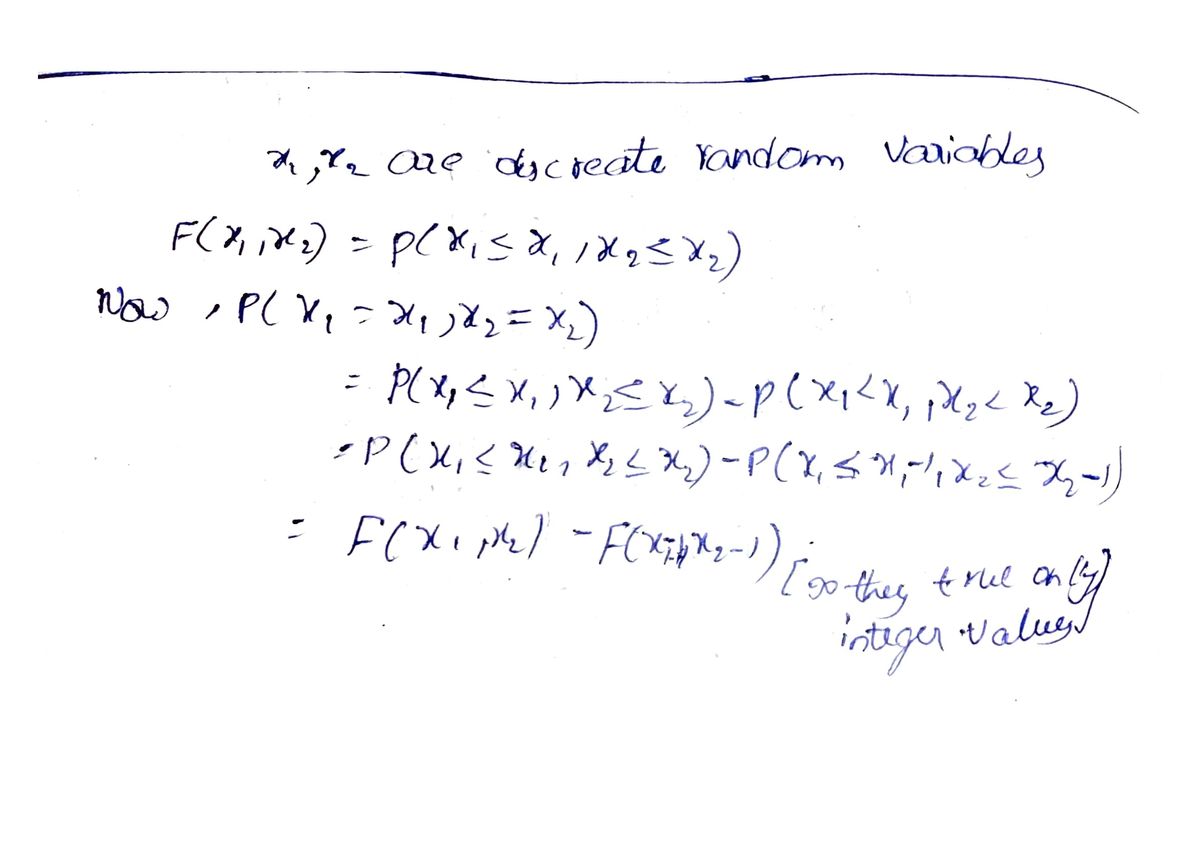 x₁, x₂ are discreate random variables
F(x₁, x₂) = P(x₁ ≤ x₁, x₂ ≤ x₂)
Now, P(x₁ = x₁, x₂ = x₂)
= P(x₁ ≤ x₁, x₂ ≤ x₂) - P(x₁ < x₁, x₂ < x₂)
= P(x₁ ≤ x₁, x₂ ≤ x₂) - P(x₁ ≤ x₁-1, x₂ ≤ x₂-1)
= F(x₁, x₂) - F(x₁-1, x₂-1) [so they only]
integer values